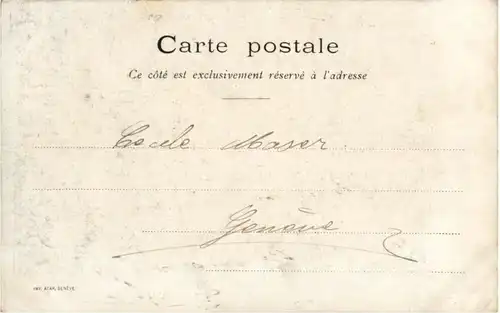 Carte postale
Ce côté est exclusivement réservé à l'adresse
Cecile Maser
Genève
IMP. ATAR, GENÈVE